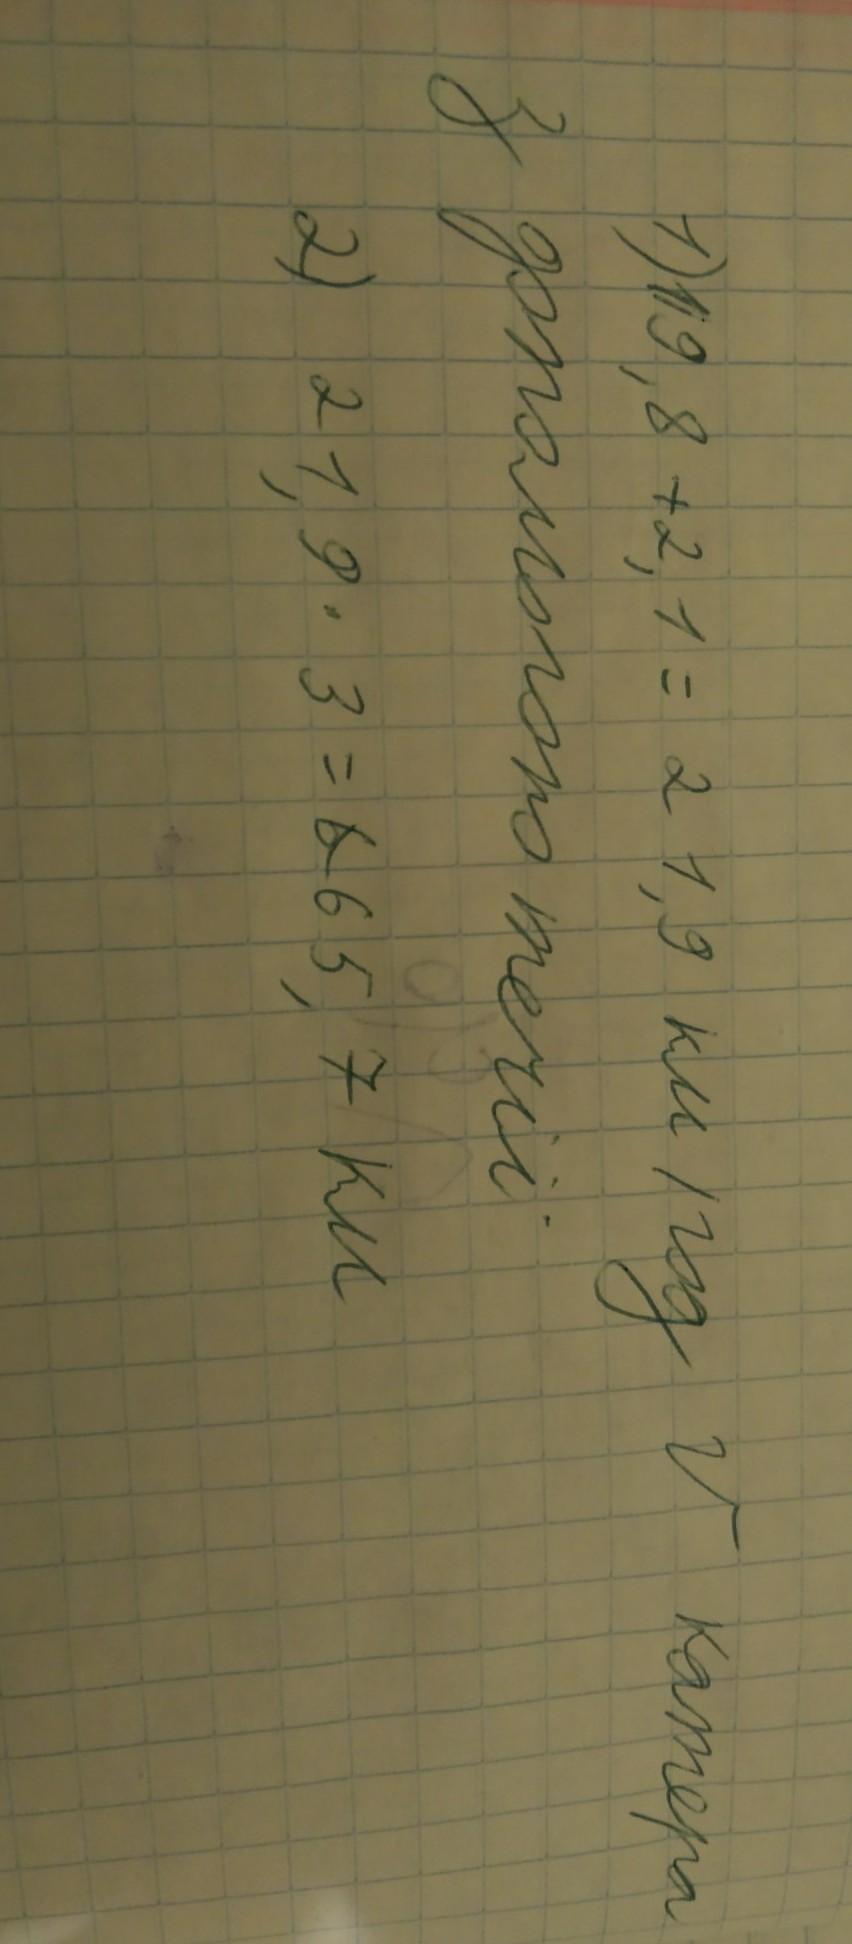 1) 19,8 + 2,1 = 21,9 км/год V катера
з допомогою течії.
2) 21,9 · 3 = 65,7 км